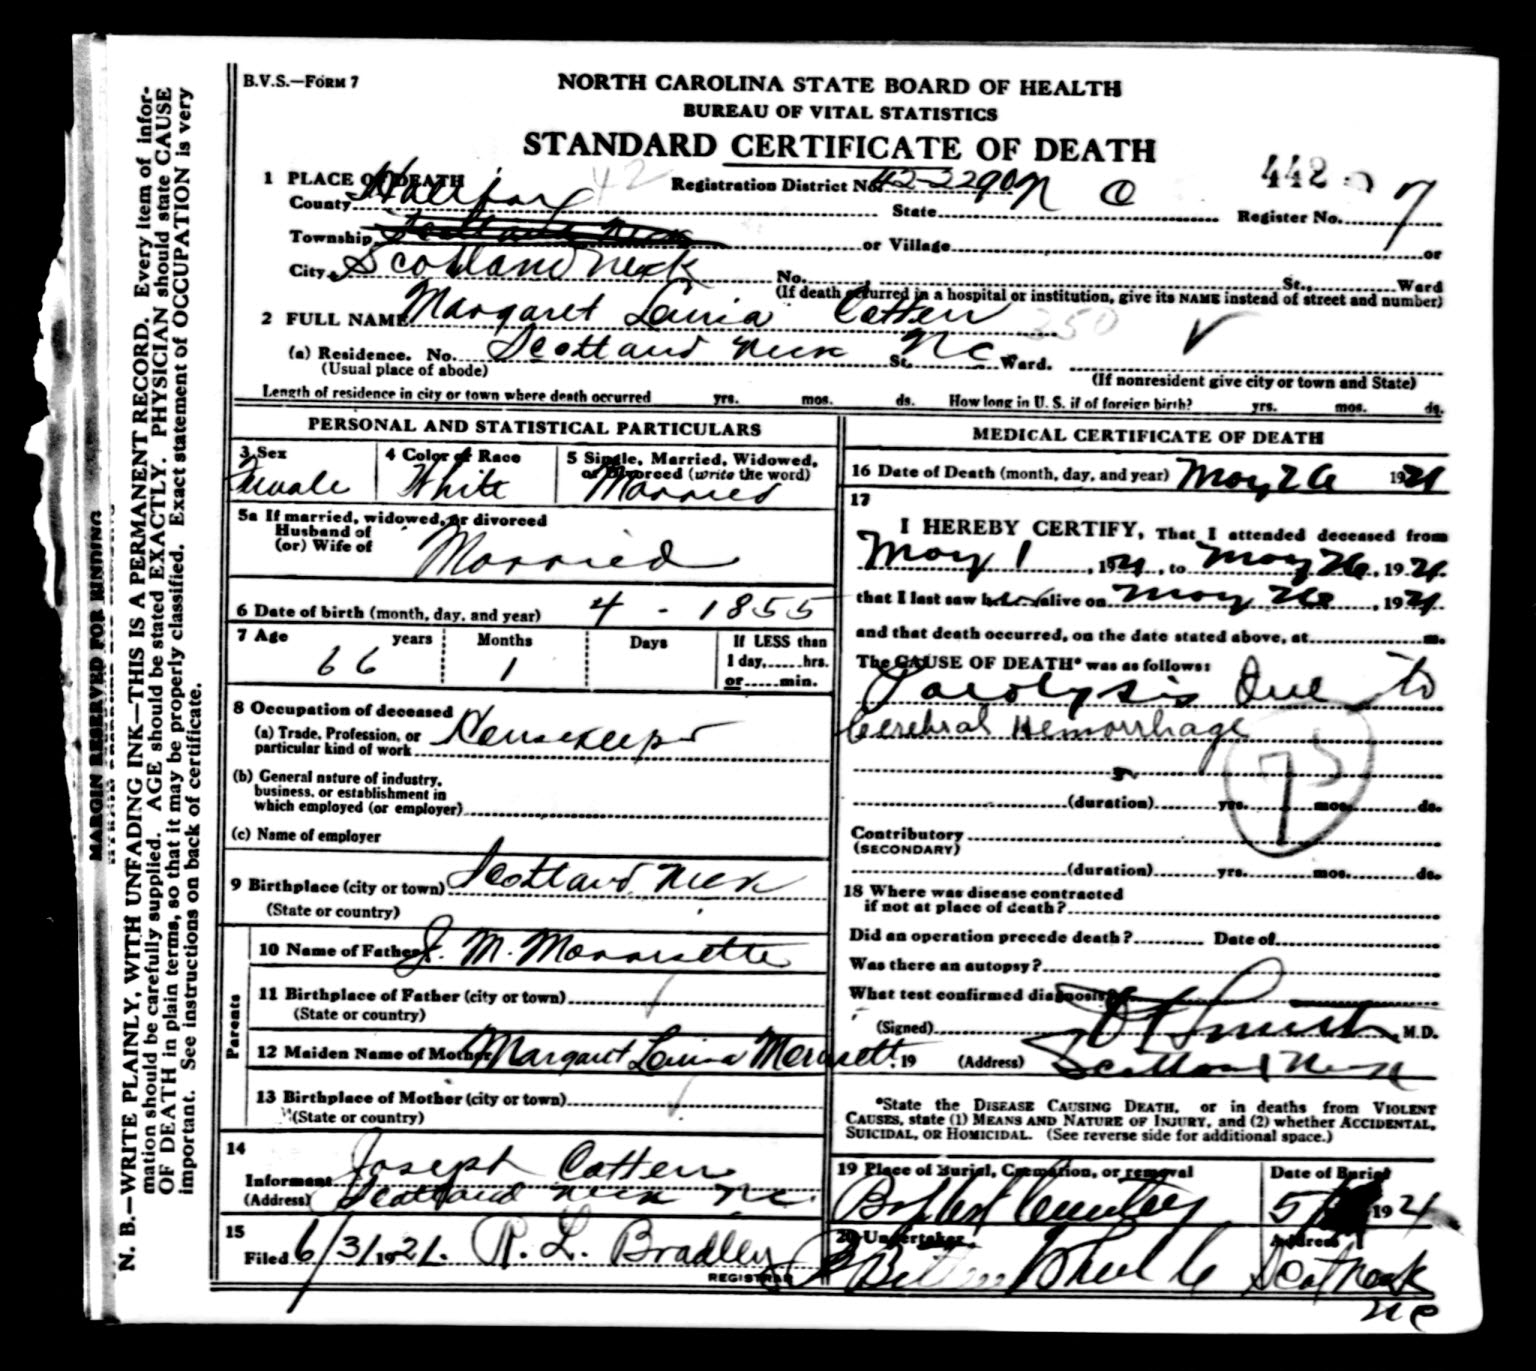 B.V.S.—Form 7
NORTH CAROLINA STATE BOARD OF HEALTH
BUREAU OF VITAL STATISTICS
STANDARD CERTIFICATE OF DEATH
1 PLACE OF DEATH 42 Registration District No. 42-3290 442 7
County Halifax State N C Register No.
Township Scotland Neck or Village or
City Scotland Neck No. St., Ward
(If death occurred in a hospital or institution, give its NAME instead of street and number)
2 FULL NAME Margaret Cotten 250
(a) Residence. No. Scotland Neck St. NC Ward.
(Usual place of abode) (If nonresident give city or town and State)
Length of residence in city or town where death occurred yrs. mos. ds. How long in U. S. if of foreign birth? yrs. mos. ds.
PERSONAL AND STATISTICAL PARTICULARS
3 Sex 4 Color or Race 5 Single, Married, Widowed, or Divorced (write the word)
Female White Married
5a If married, widowed, or divorced
Husband of
(or) Wife of Married
6 Date of birth (month, day, and year) 4 - 1855
7 Age years Months Days If LESS than
66 1 1 day,......hrs.
or......min.
8 Occupation of deceased
(a) Trade, Profession, or
particular kind of work Housekeeper
(b) General nature of industry,
business, or establishment in
which employed (or employer)
(c) Name of employer
9 Birthplace (city or town) Scotland Neck
(State or country)
Parents
10 Name of Father J. M. Morrisette
11 Birthplace of Father (city or town)
(State or country)
12 Maiden Name of Mother Margaret
13 Birthplace of Mother (city or town)
(State or country)
14
Informant Joseph Cotten
(Address) Scotland Neck NC
15
Filed 6/3/1921. R. L. Bradley
REGISTRAR
MEDICAL CERTIFICATE OF DEATH
16 Date of Death (month, day, and year) May 26 1921
17
I HEREBY CERTIFY, That I attended deceased from
May 1, 1921, to May 26, 1921.
that I last saw her alive on May 26, 1921
and that death occurred, on the date stated above, at m.
The CAUSE OF DEATH* was as follows:
Paralysis Due to
Cerebral Hemorrhage
75
(duration) yrs. mos. ds.
Contributory
(SECONDARY)
(duration) yrs. mos. ds.
18 Where was disease contracted
if not at place of death?
Did an operation precede death? Date of
Was there an autopsy?
What test confirmed diagnosis?
(Signed) Smith M.D.
, 19 (Address) Scotland Neck
*State the DISEASE CAUSING DEATH, or in deaths from VIOLENT
CAUSES, state (1) MEANS AND NATURE OF INJURY, and (2) whether ACCIDENTAL,
SUICIDAL, OR HOMICIDAL. (See reverse side for additional space.)
19 Place of Burial, Cremation, or removal Date of Burial
Baptist Cemetery 5/ 1921
20 Undertaker Address
Scot Neck
NC
MARGIN RESERVED FOR BINDING
N. B.—WRITE PLAINLY, WITH UNFADING INK—THIS IS A PERMANENT RECORD. Every item of infor-
mation should be carefully supplied. AGE should be stated EXACTLY. PHYSICIAN should state CAUSE
OF DEATH in plain terms, so that it may be properly classified. Exact statement of OCCUPATION is very
important. See instructions on back of certificate.